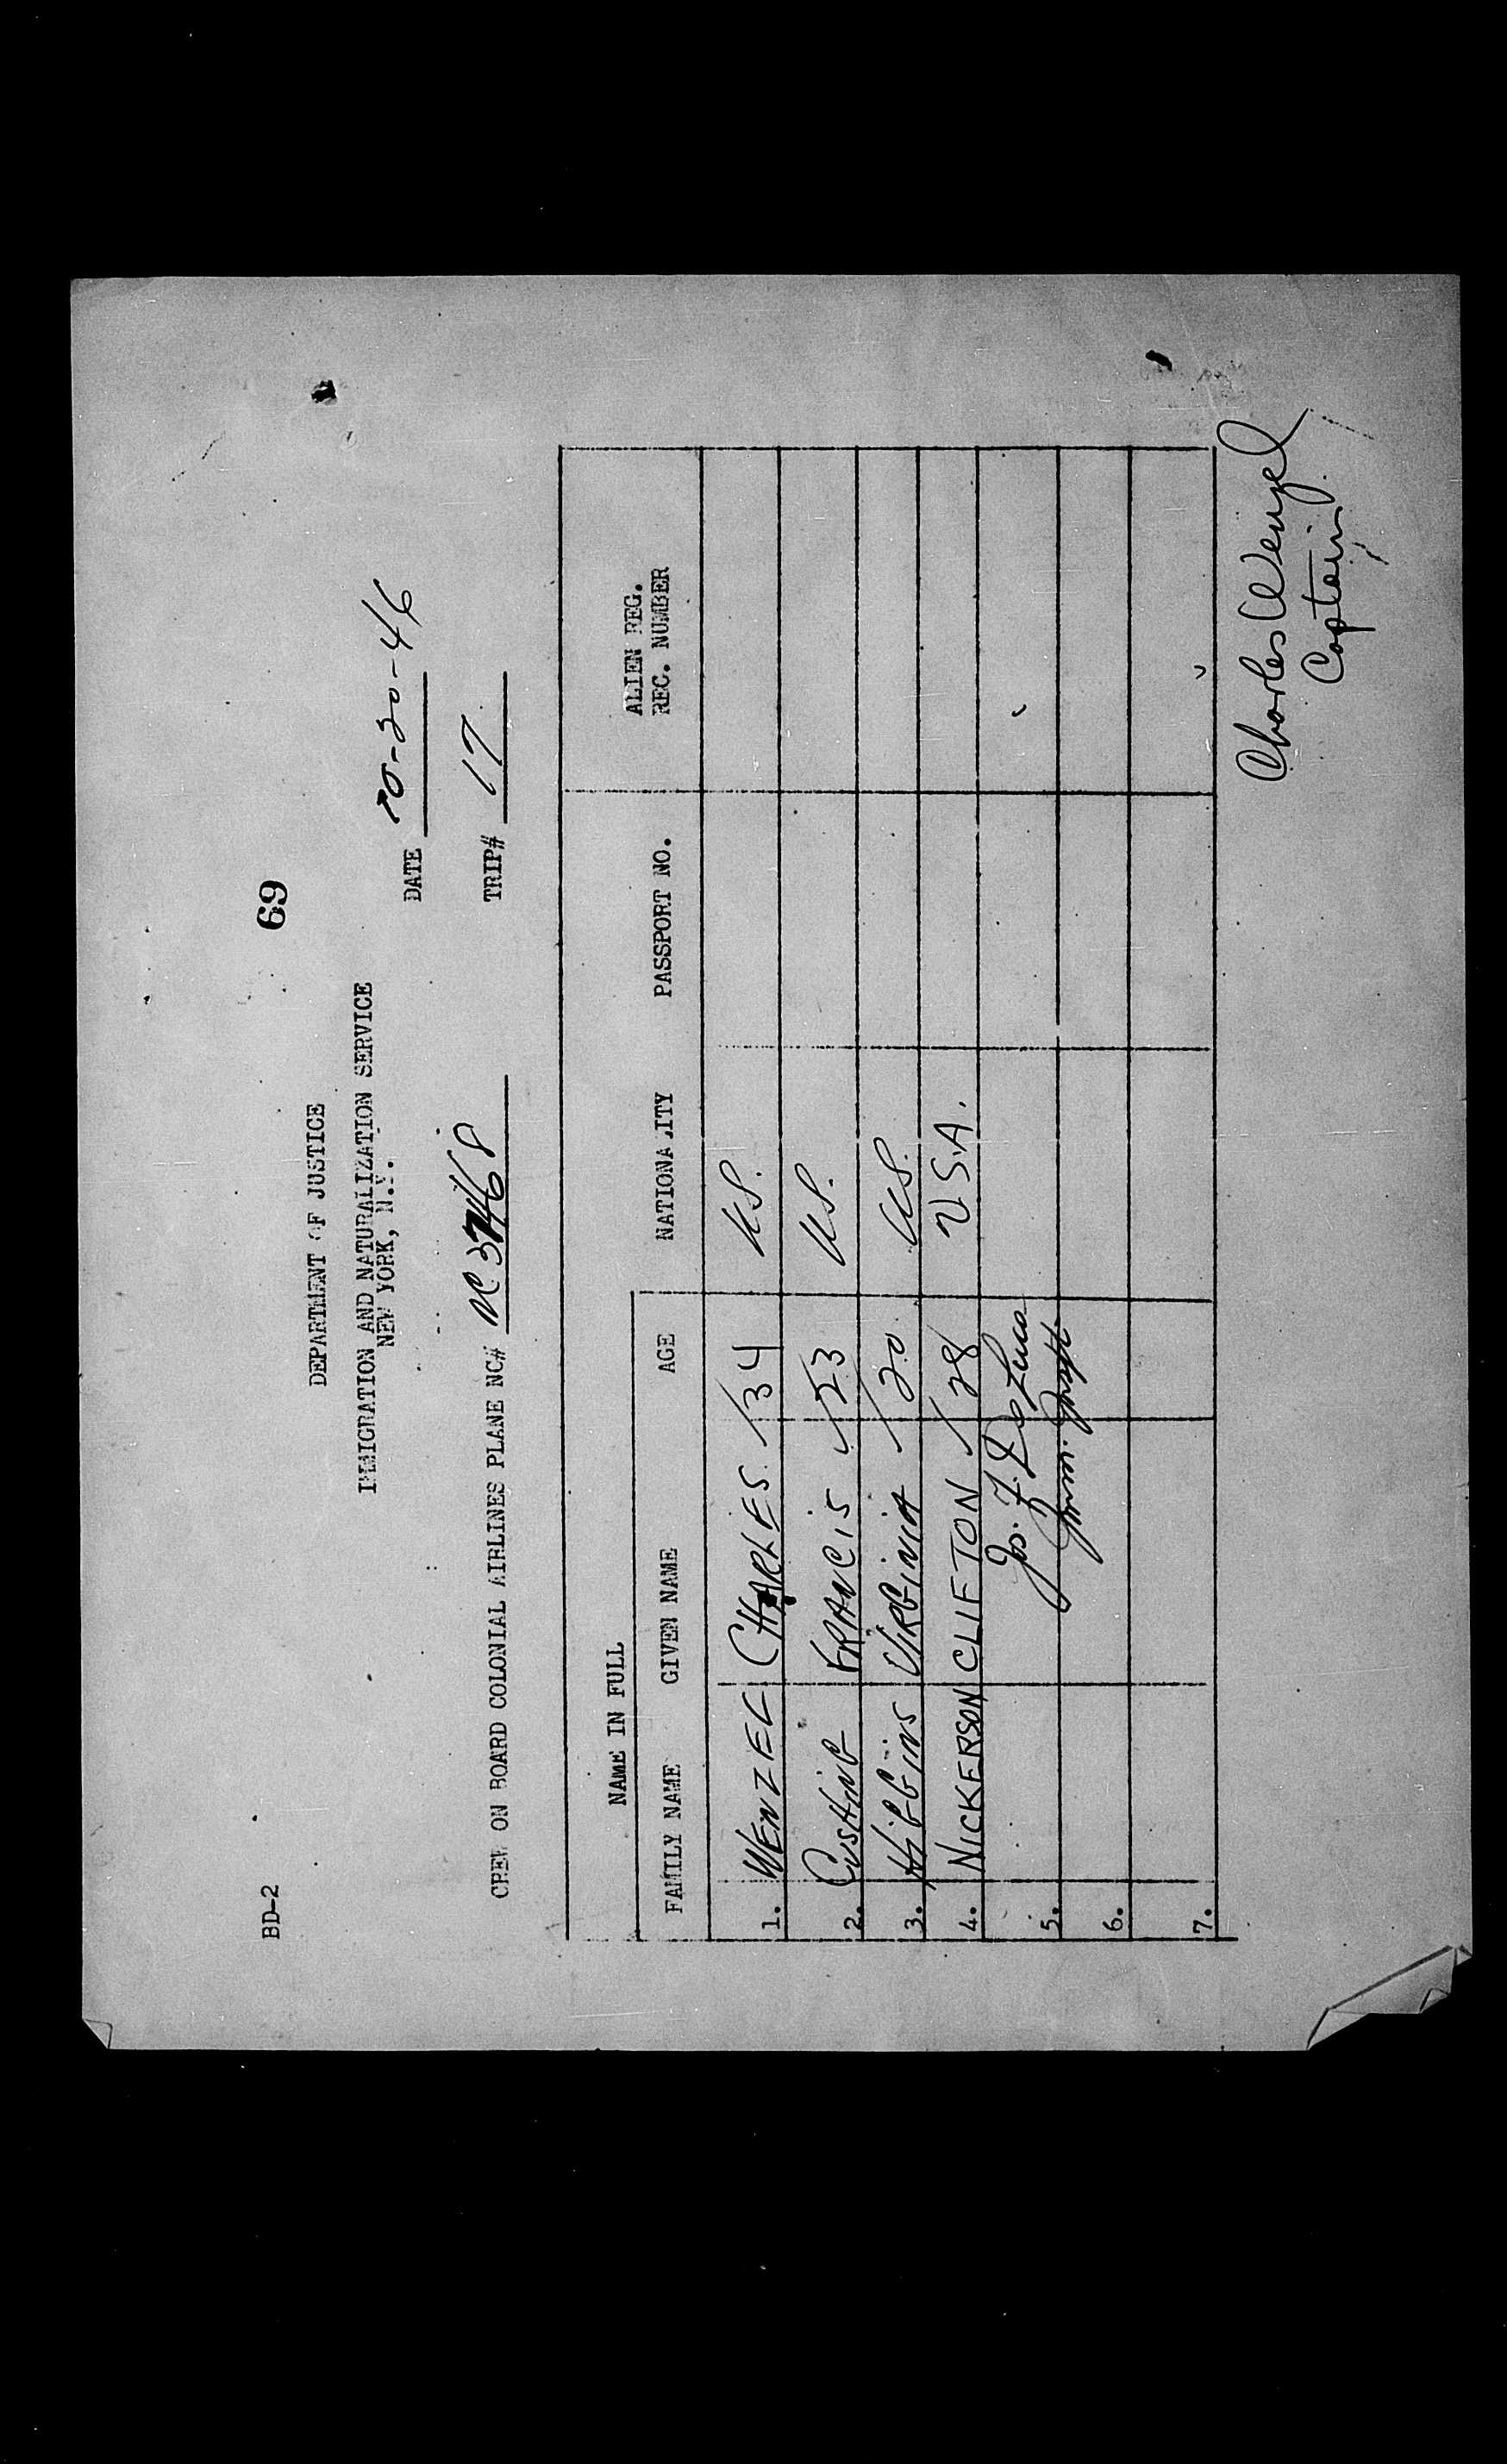 BD-2
69
DEPARTMENT OF JUSTICE
IMMIGRATION AND NATURALIZATION SERVICE
NEW YORK, N.Y.
DATE 10-30-46
CREW ON BOARD COLONIAL AIRLINES PLANE NC# NC 37468 TRIP# 17
NAME IN FULL
ALIEN REG.
FAMILY NAME GIVEN NAME AGE NATIONALITY PASSPORT NO. REC. NUMBER
1. WENZEL CHARLES 34 US.
2. CUSHING FRANCIS 23 US.
3. HIGGINS VIRGINIA 20 US.
4. NICKERSON CLIFTON 28 U.S.A.
Jos. F. De Luca
5. Imm. Inspt.
6.
7.
Charles Wenzel
Captain